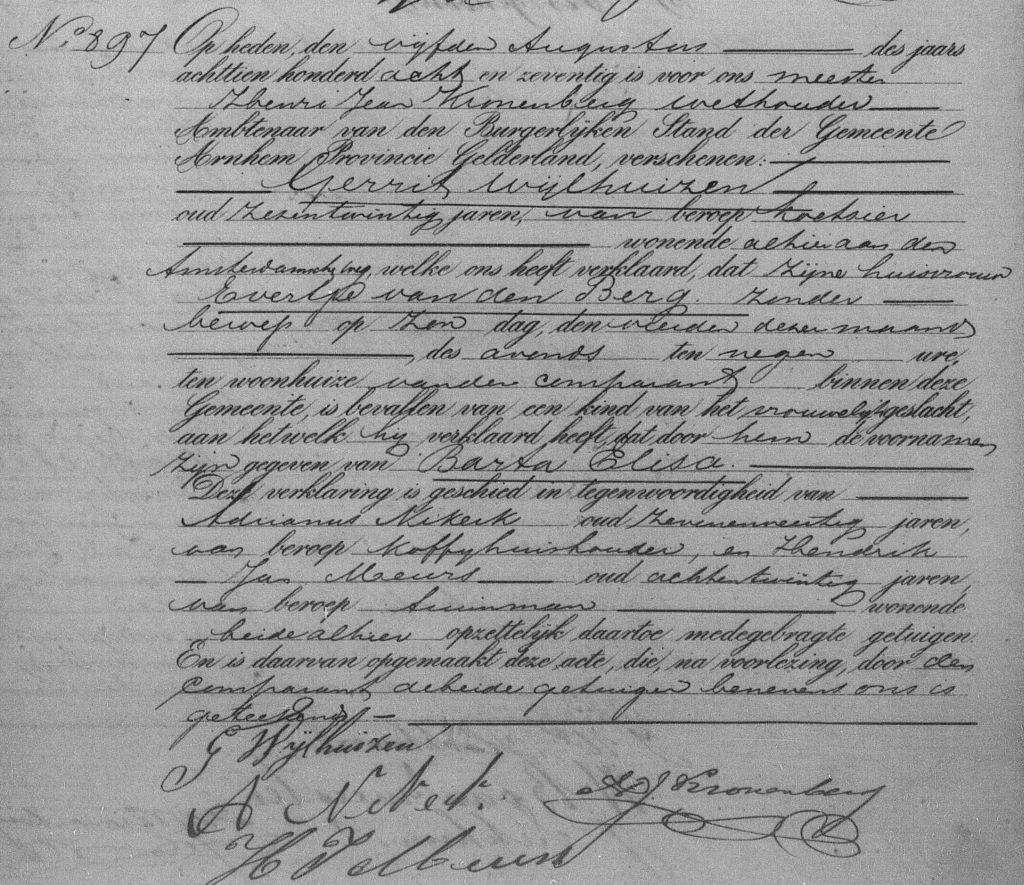 No. 897 Op heden, den vijfden Augustus des jaars
achttien honderd acht en zeventig is voor ons meester
Henri Jean Kronenberg wethouder
Ambtenaar van den Burgerlijken Stand der Gemeente
Arnhem, Provincie Gelderland, verschenen:
Gerrit Wijlhuizen
oud zesentwintig jaren, van beroep koetsier
wonende alhier aan den
Amsterdamscheweg, welke ons heeft verklaard, dat zijne huisvrouw
Evertje van den Berg. zonder
beroep op den dag, den vierden dezer maand
des avonds ten negen ure,
ten woonhuize van den comparant binnen deze
Gemeente, is bevallen van een kind van het vrouwelijk geslacht,
aan hetwelk hij verklaard heeft, dat door hem de voornamen
zijn gegeven van Barta Elisa.
Deze verklaring is geschied in tegenwoordigheid van
Adrianus Nikerk oud zevenenveertig jaren,
van beroep koffyhuishouder, en Hendrik
Jan Meurs oud achtentwintig jaren,
van beroep tuinman wonende
beide alhier opzettelijk daartoe medegebragte getuigen.
En is daarvan opgemaakt deze acte, die, na voorlezing, door den
comparant de beide getuigen benevens ons is
geteekend
G Wijlhuizen
A
HJ Kronenberg
H J Meurs